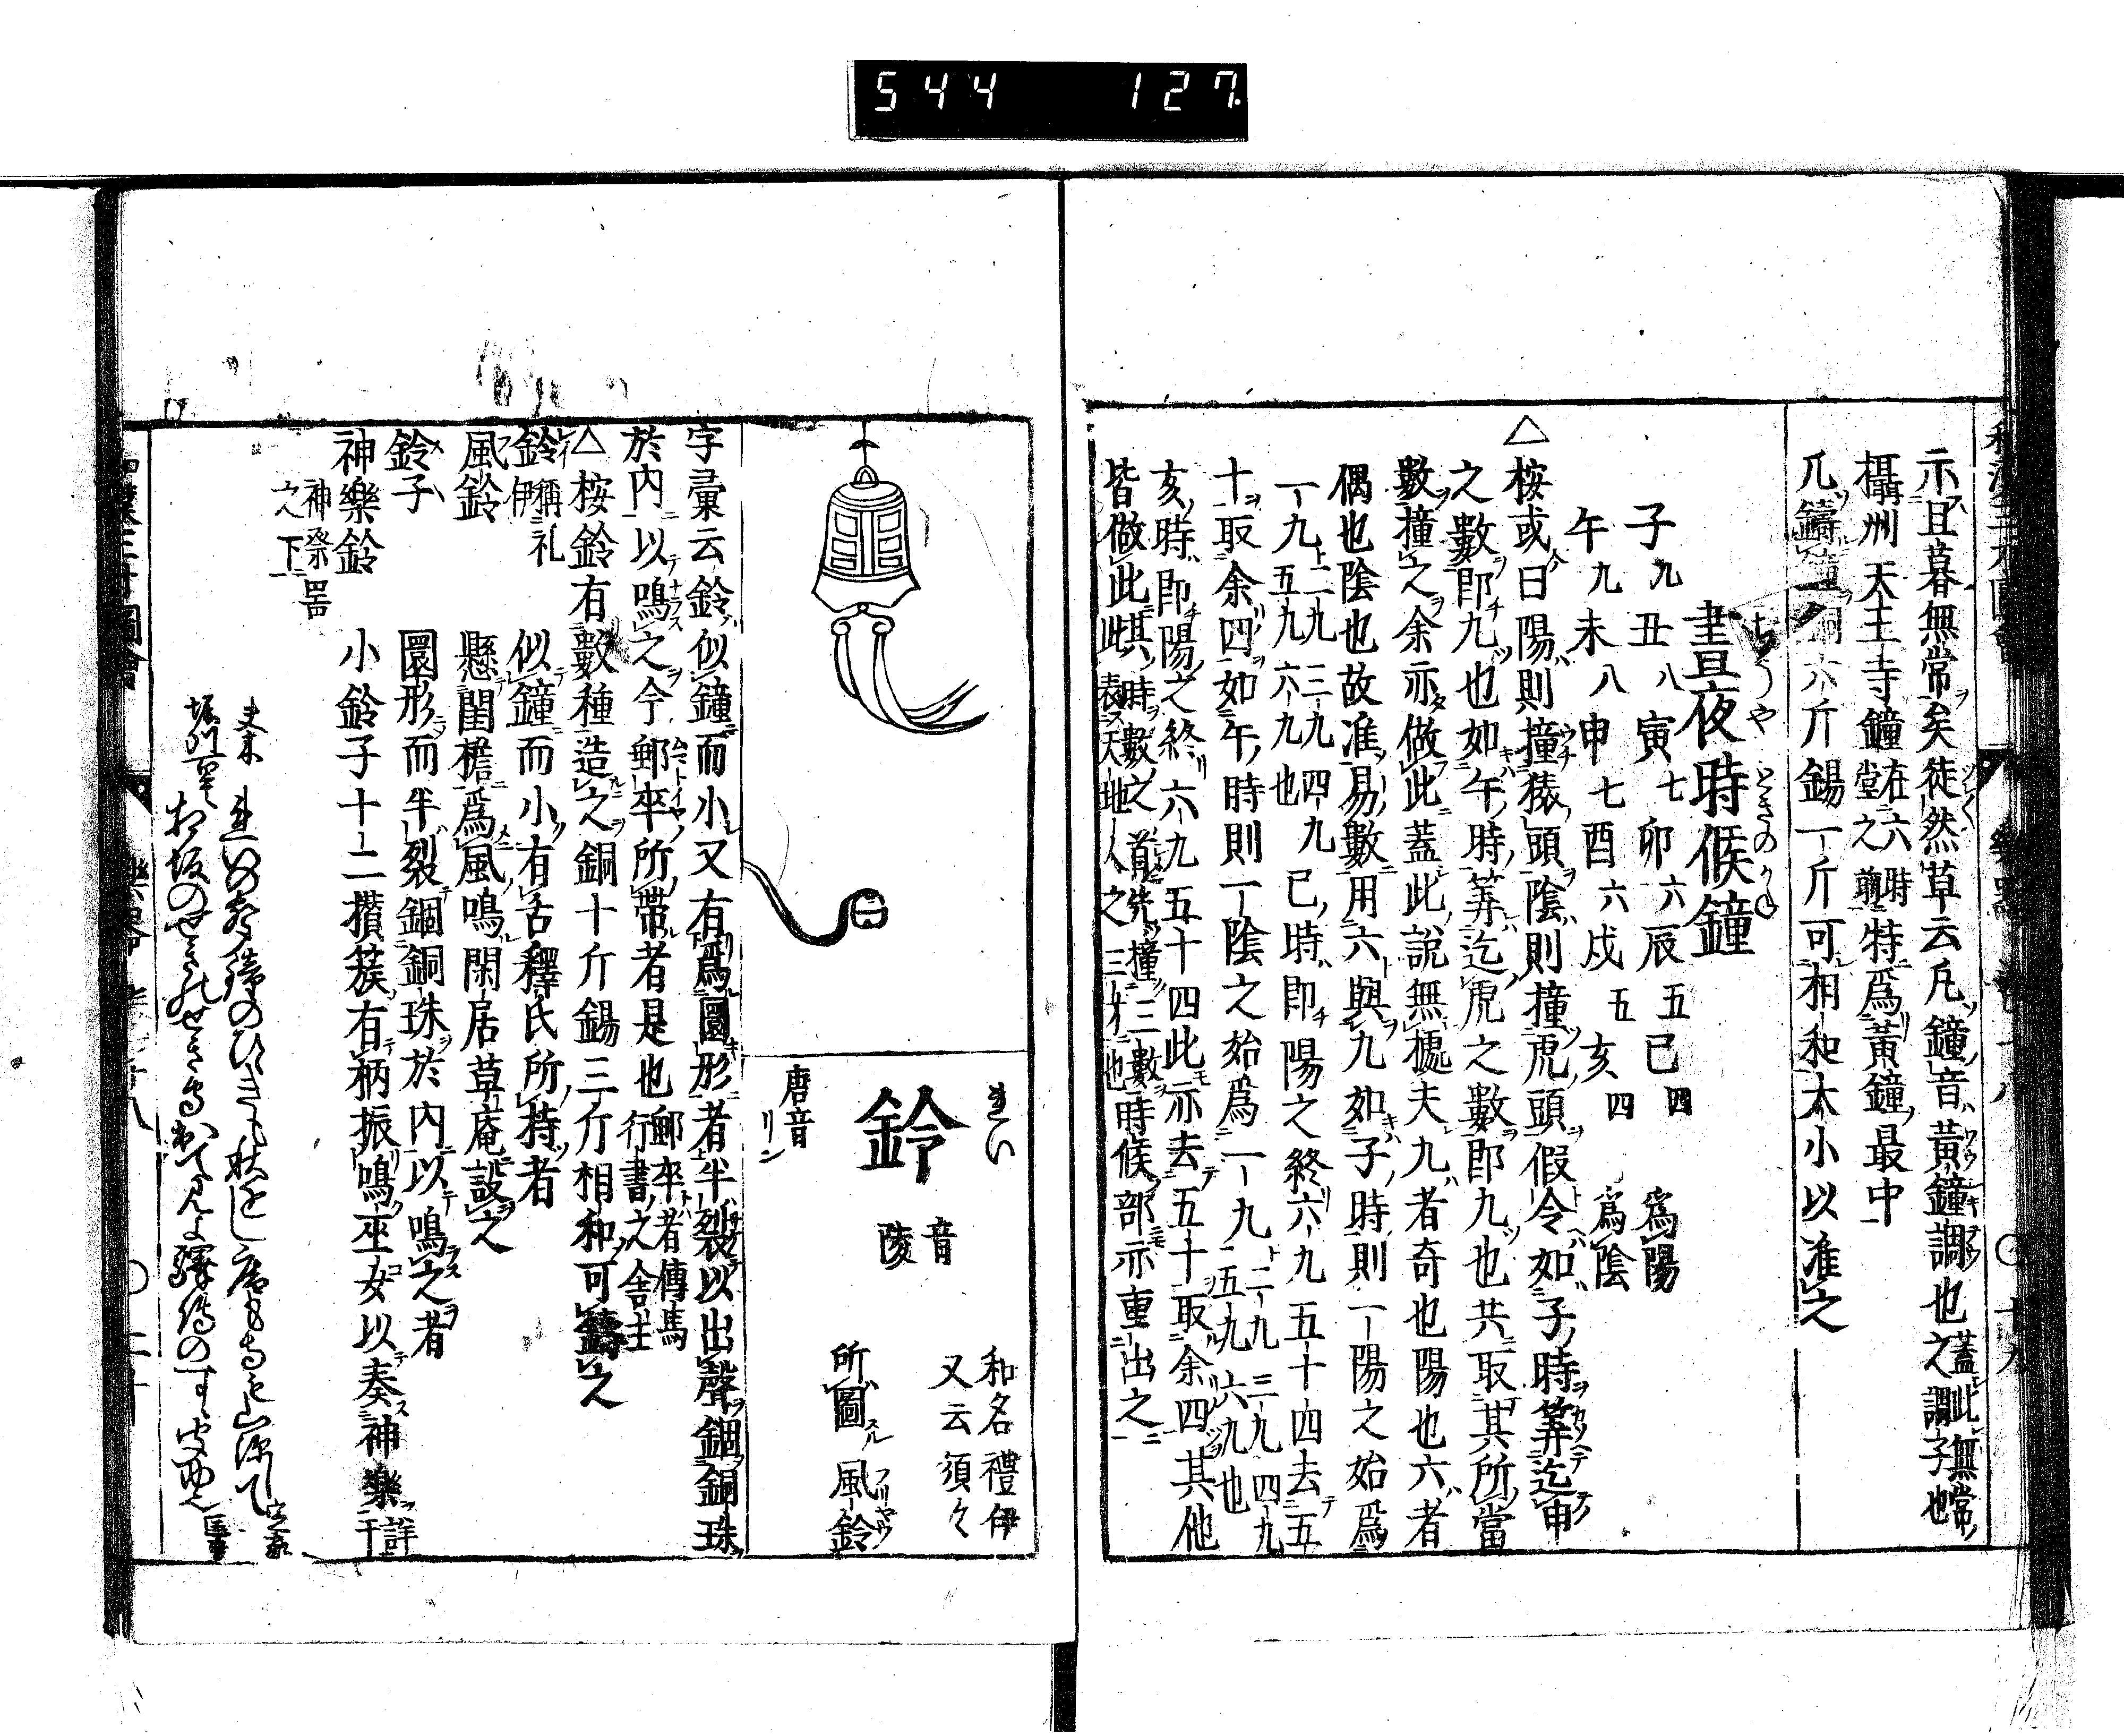 544 127
示且暮無常矣徒然草云凡鐘音黄鐘調也蓋此無常之調子也
攝州天王寺鐘在六時堂之前特爲黄鐘最中
凡鑄鐘銅六斤錫一斤可相和大小以准之
ちうや ときの かね
晝夜時候鐘
子九 丑八 寅七 卯六 辰五 巳四 爲陽
午九 未八 申七 酉六 戌五 亥四 爲陰
△桉或曰陽則撞猿頭陰則撞虎頭假令如子時筭迄申
之數即九也如午時筭迄虎之數即九也共取其所當
數撞之余亦倣此蓋此說無㯫夫九者奇也陽也六者
偶也陰也故准易數用六與九如子時則一陽之始爲
一九二九三九四九五九六九也巳時即陽之終六九五十四去五
十取余四如午時則一陰之始爲一九二九三九四九五九六九也
亥時即陽之終六九五十四此亦去五十取余四其他
皆倣此其時數之首先撞三數此表天地人之三才也時候部亦重出之
れい
鈴
音陵
和名禮伊
又云須々
唐音リン
所圖風鈴
字彙云鈴似鐘而小又有爲圜形者半裂以出聲錮銅珠
於内以鳴之今郵卒所帶者是也郵卒者傳馬行書之舍主
△桉鈴有數種造之銅十斤錫三斤相和可鑄之
鈴稱礼伊 似鐘而小有舌釋氏所持者
風鈴 懸閨檐爲風鳴閑居草庵設之
鈴子 圜形而半裂錮銅珠於内以鳴之者
神樂鈴 小鈴子十二攅簇有柄振鳴巫女以奏神樂詳于神祭噐之下